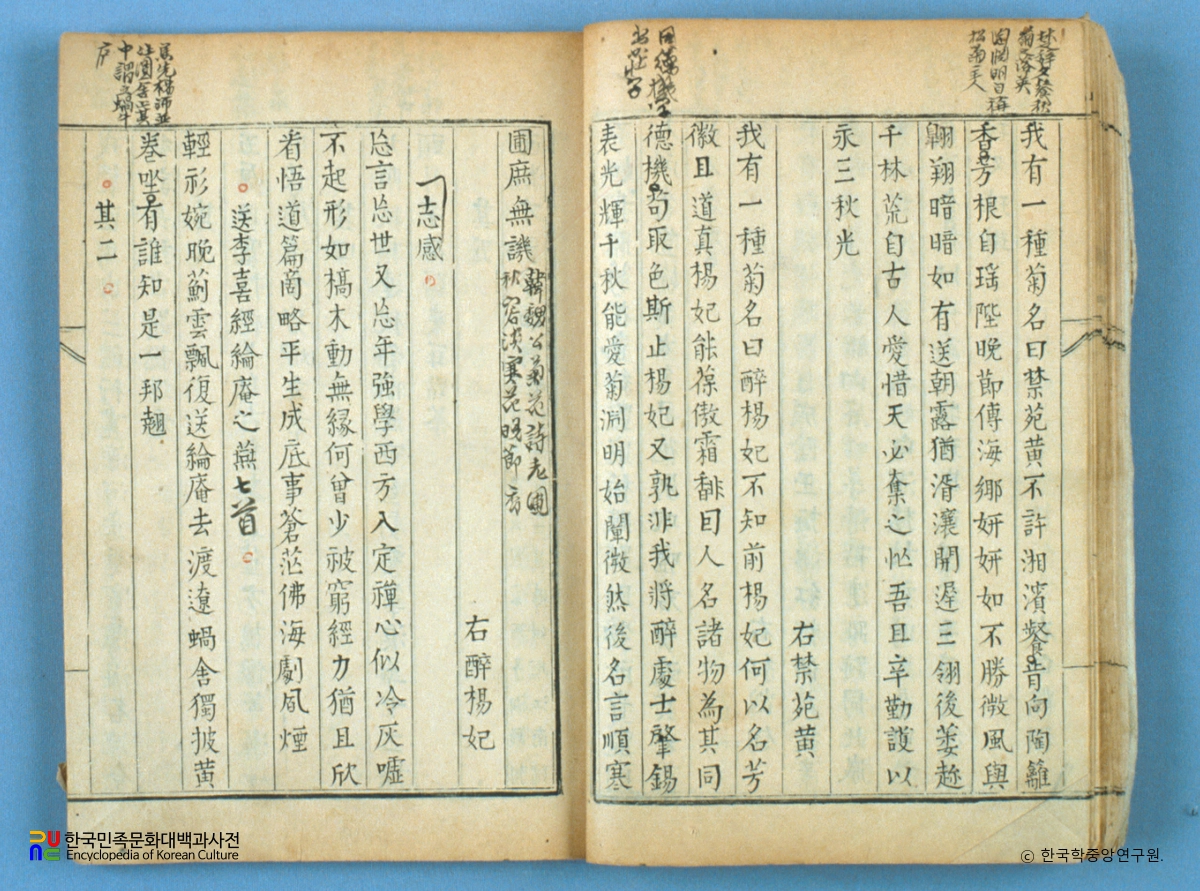 我有一種菊名曰禁苑黃不許湘濱餐肯向陶籬
香芳根自瑶陛晚節傳海鄉姸姸如不勝微風與
翺翔暗暗如有送朝露猶湑瀼開遲三翎後萎趂
千林荒自古人愛惜天必奪之忙吾且辛勤護以
永三秋光
右禁苑黃
我有一種菊名曰醉楊妃不知前楊妃何以名芳
徽且道真楊妃能葆傲霜馡曰人名諸物為其同
德機苟取色斯止楊妃又孰非我將醉處士肇錫
表光輝千秋能愛菊淵明始闡微然後名言順寒
圃庶無譏
韓魏公菊花詩老圃
秋容淡寒花晚節香
右醉楊妃
志感
忘言忘世又忘年強學西方入定禪心似冷灰噓
不起形如槁木動無緣何曾少被窮經力猶且欣
看悟道篇商略平生成底事蒼茫佛海劇風煙
送李喜經綸庵之燕七首
輕衫婉晚薊雲飄復送綸庵去渡遼蝸舍獨披黃
卷坐有誰知是一邦翹
其二
한국민족문화대백과사전
Encyclopedia of Korean Culture
ⓒ 한국학중앙연구원.